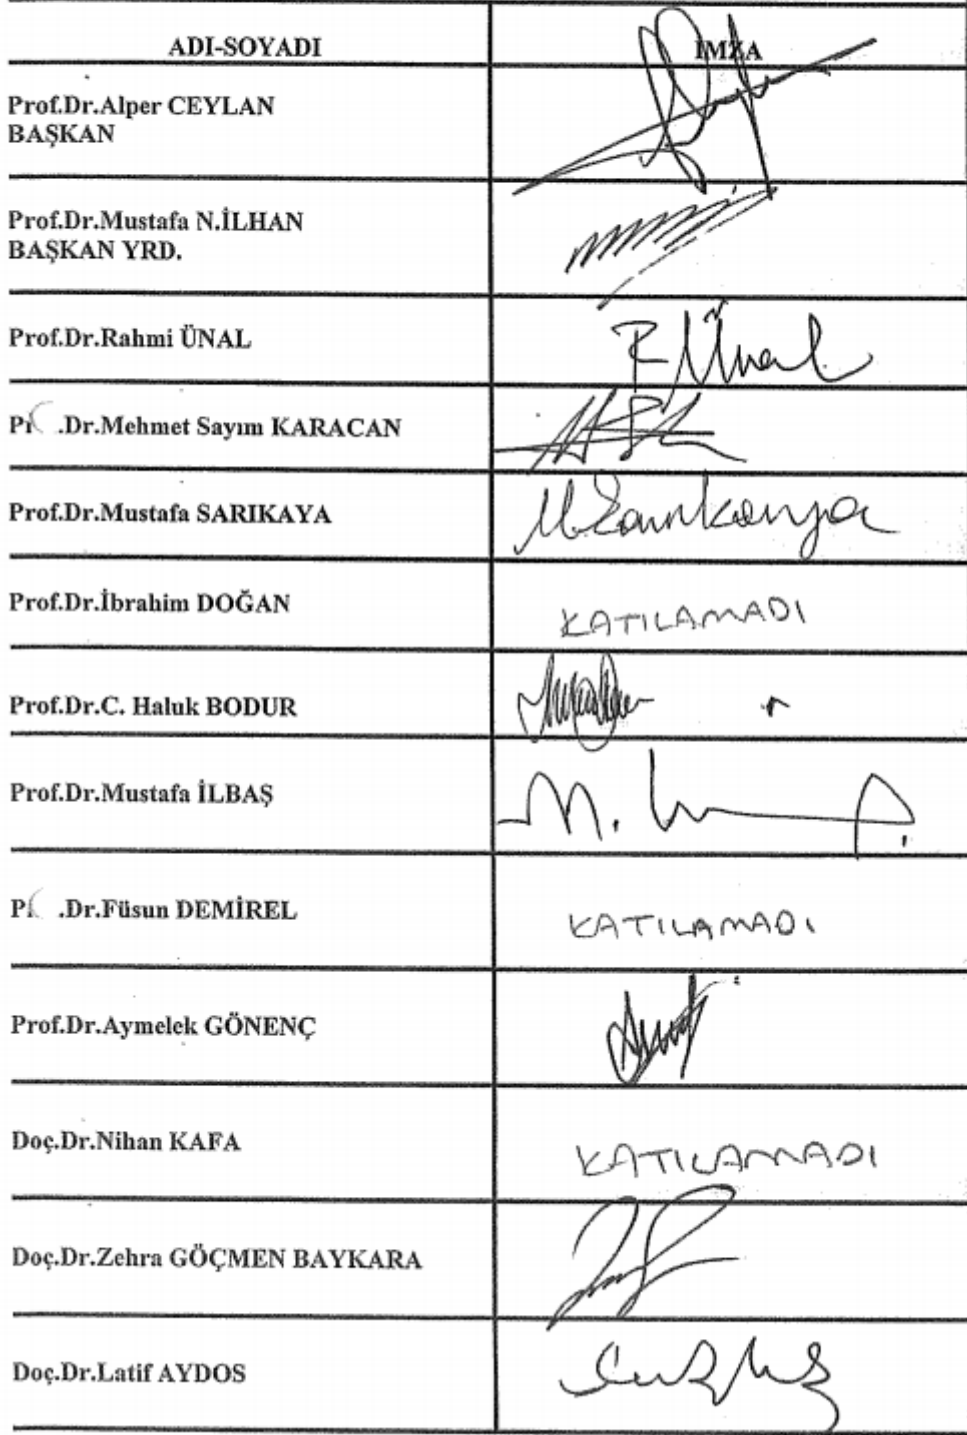 ADI-SOYADI İMZA
Prof.Dr.Alper CEYLAN
BAŞKAN
Prof.Dr.Mustafa N.İLHAN
BAŞKAN YRD.
Prof.Dr.Rahmi ÜNAL R Ünal
.Dr.Mehmet Sayım KARACAN
Prof.Dr.Mustafa SARIKAYA M. Sarıkaya
Prof.Dr.İbrahim DOĞAN KATILAMADI
Prof.Dr.C. Haluk BODUR
Prof.Dr.Mustafa İLBAŞ
.Dr.Füsun DEMİREL KATILAMADI
Prof.Dr.Aymelek GÖNENÇ
Doç.Dr.Nihan KAFA KATILAMADI
Doç.Dr.Zehra GÖÇMEN BAYKARA
Doç.Dr.Latif AYDOS